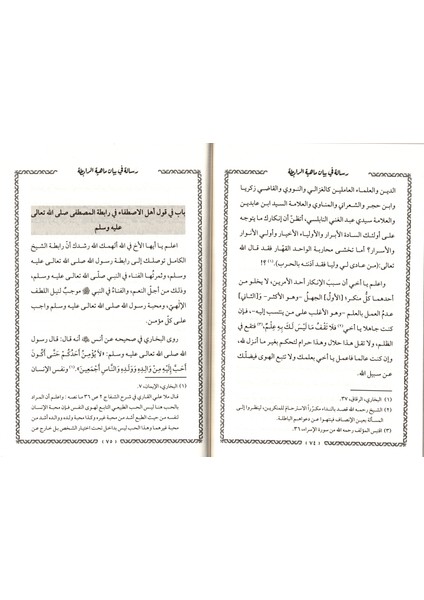 رسالة في بيان ماهية الرابطة
الدين والعلماء العاملين كالغزالي والنووي والقاضي زكريا
وابن حجر والشعراني والمناوي والعلامة السيد ابن عابدين
والعلامة سيدي عبد الغني النابلسي، أتظنّ أن إنكارك ما يتوجه
على أولئك السادة الأبرار والأولياء الأخيار أولي الأنوار
والأسرار؟ أما تخشى محاربة الواحد القهّار فقد قال الله
تعالى: (من عادى لي وليا فقد آذنته بالحرب)(١) ؟!
واعلم يا أخي أن سبب الإنكار أحد أمرين، لا يخلو من
أحدهما كلُّ منكر: [الأول] الجهلُ -وهو الأكثر- و[الثاني]
عدمُ العمل بالعلم -وهو الأغلب على من ينتسب إليه-، فإن
كنت جاهلا يا أخي(٢) ﴿لا تَقْفُ مَا لَيْسَ لَكَ بِهِ عِلْمٌ﴾(٣) فتقع في
الظلم، ولا تقل هذا حلال وهذا حرام لتحكم بغير ما أنزل الله،
وإن كنت عالما فاعمل يا أخي بعلمك ولا تتبع الهوى فيضلك
عن سبيل الله.
(١) البخاري، الرقاق، ٣٧.
(٢) الشيخ رحمه الله قصد بالنداء مكرّراً الاسترحام للمنكرين، لينظروا إلى
المسألة بعين الإنصاف فينتهوا عن دعواهم الباطلة.
(٣) اقتبس المؤلف رحمه الله من سورة الإسراء، ٣٦.
٧٤
رسالة في بيان ماهية الرابطة
باب في قول أهل الاصطفاء في رابطة المصطفى صلى الله تعالى
عليه وسلم
اعلم يا أيها الأخ في الله ألهمك الله رشدك أنّ رابطة الشيخ
الكامل توصلك إلى رابطة رسول الله صلى الله تعالى عليه
وسلم، وثمرتُها الفناء في النبي صلّى الله تعالى عليه وسلم،
وذلك من أجلّ النعم، والفناء في النبي ﷺ موجبٌ لنيل اللطف
الإلهيّ، ومحبة رسول الله صلى الله تعالى عليه وسلم واجب
على كلّ مؤمن.
روى البخاري في صحيحه عن أنس ﷺ أنه قال: قال رسول
الله صلى الله تعالى عليه وسلم: «لا يُؤْمِنُ أَحَدُكُمْ حَتَّى أَكُونَ
أَحَبَّ إِلَيْهِ مِنْ وَالِدِهِ وَوَلَدِهِ وَالنَّاسِ أَجْمَعِينَ»(١)، ونفس الإنسان
(١) البخاري، الإيمان، ٧.
قال ملا علي القاري في شرح الشفا ج ٢ ص ٣٦ ما نصه : واعلم أن المراد
بالحب هنا ليس الحب الطبيعي التابع لهوى النفس فإن محبة الإنسان
لنفسه من حيث الطبع أشد من محبة غيره وكذا محبة ولده ووالده أشد من
محبة غيرهما وهذا الحب ليس بداخل تحت اختيار الشخص بل خارج عن
٧٥